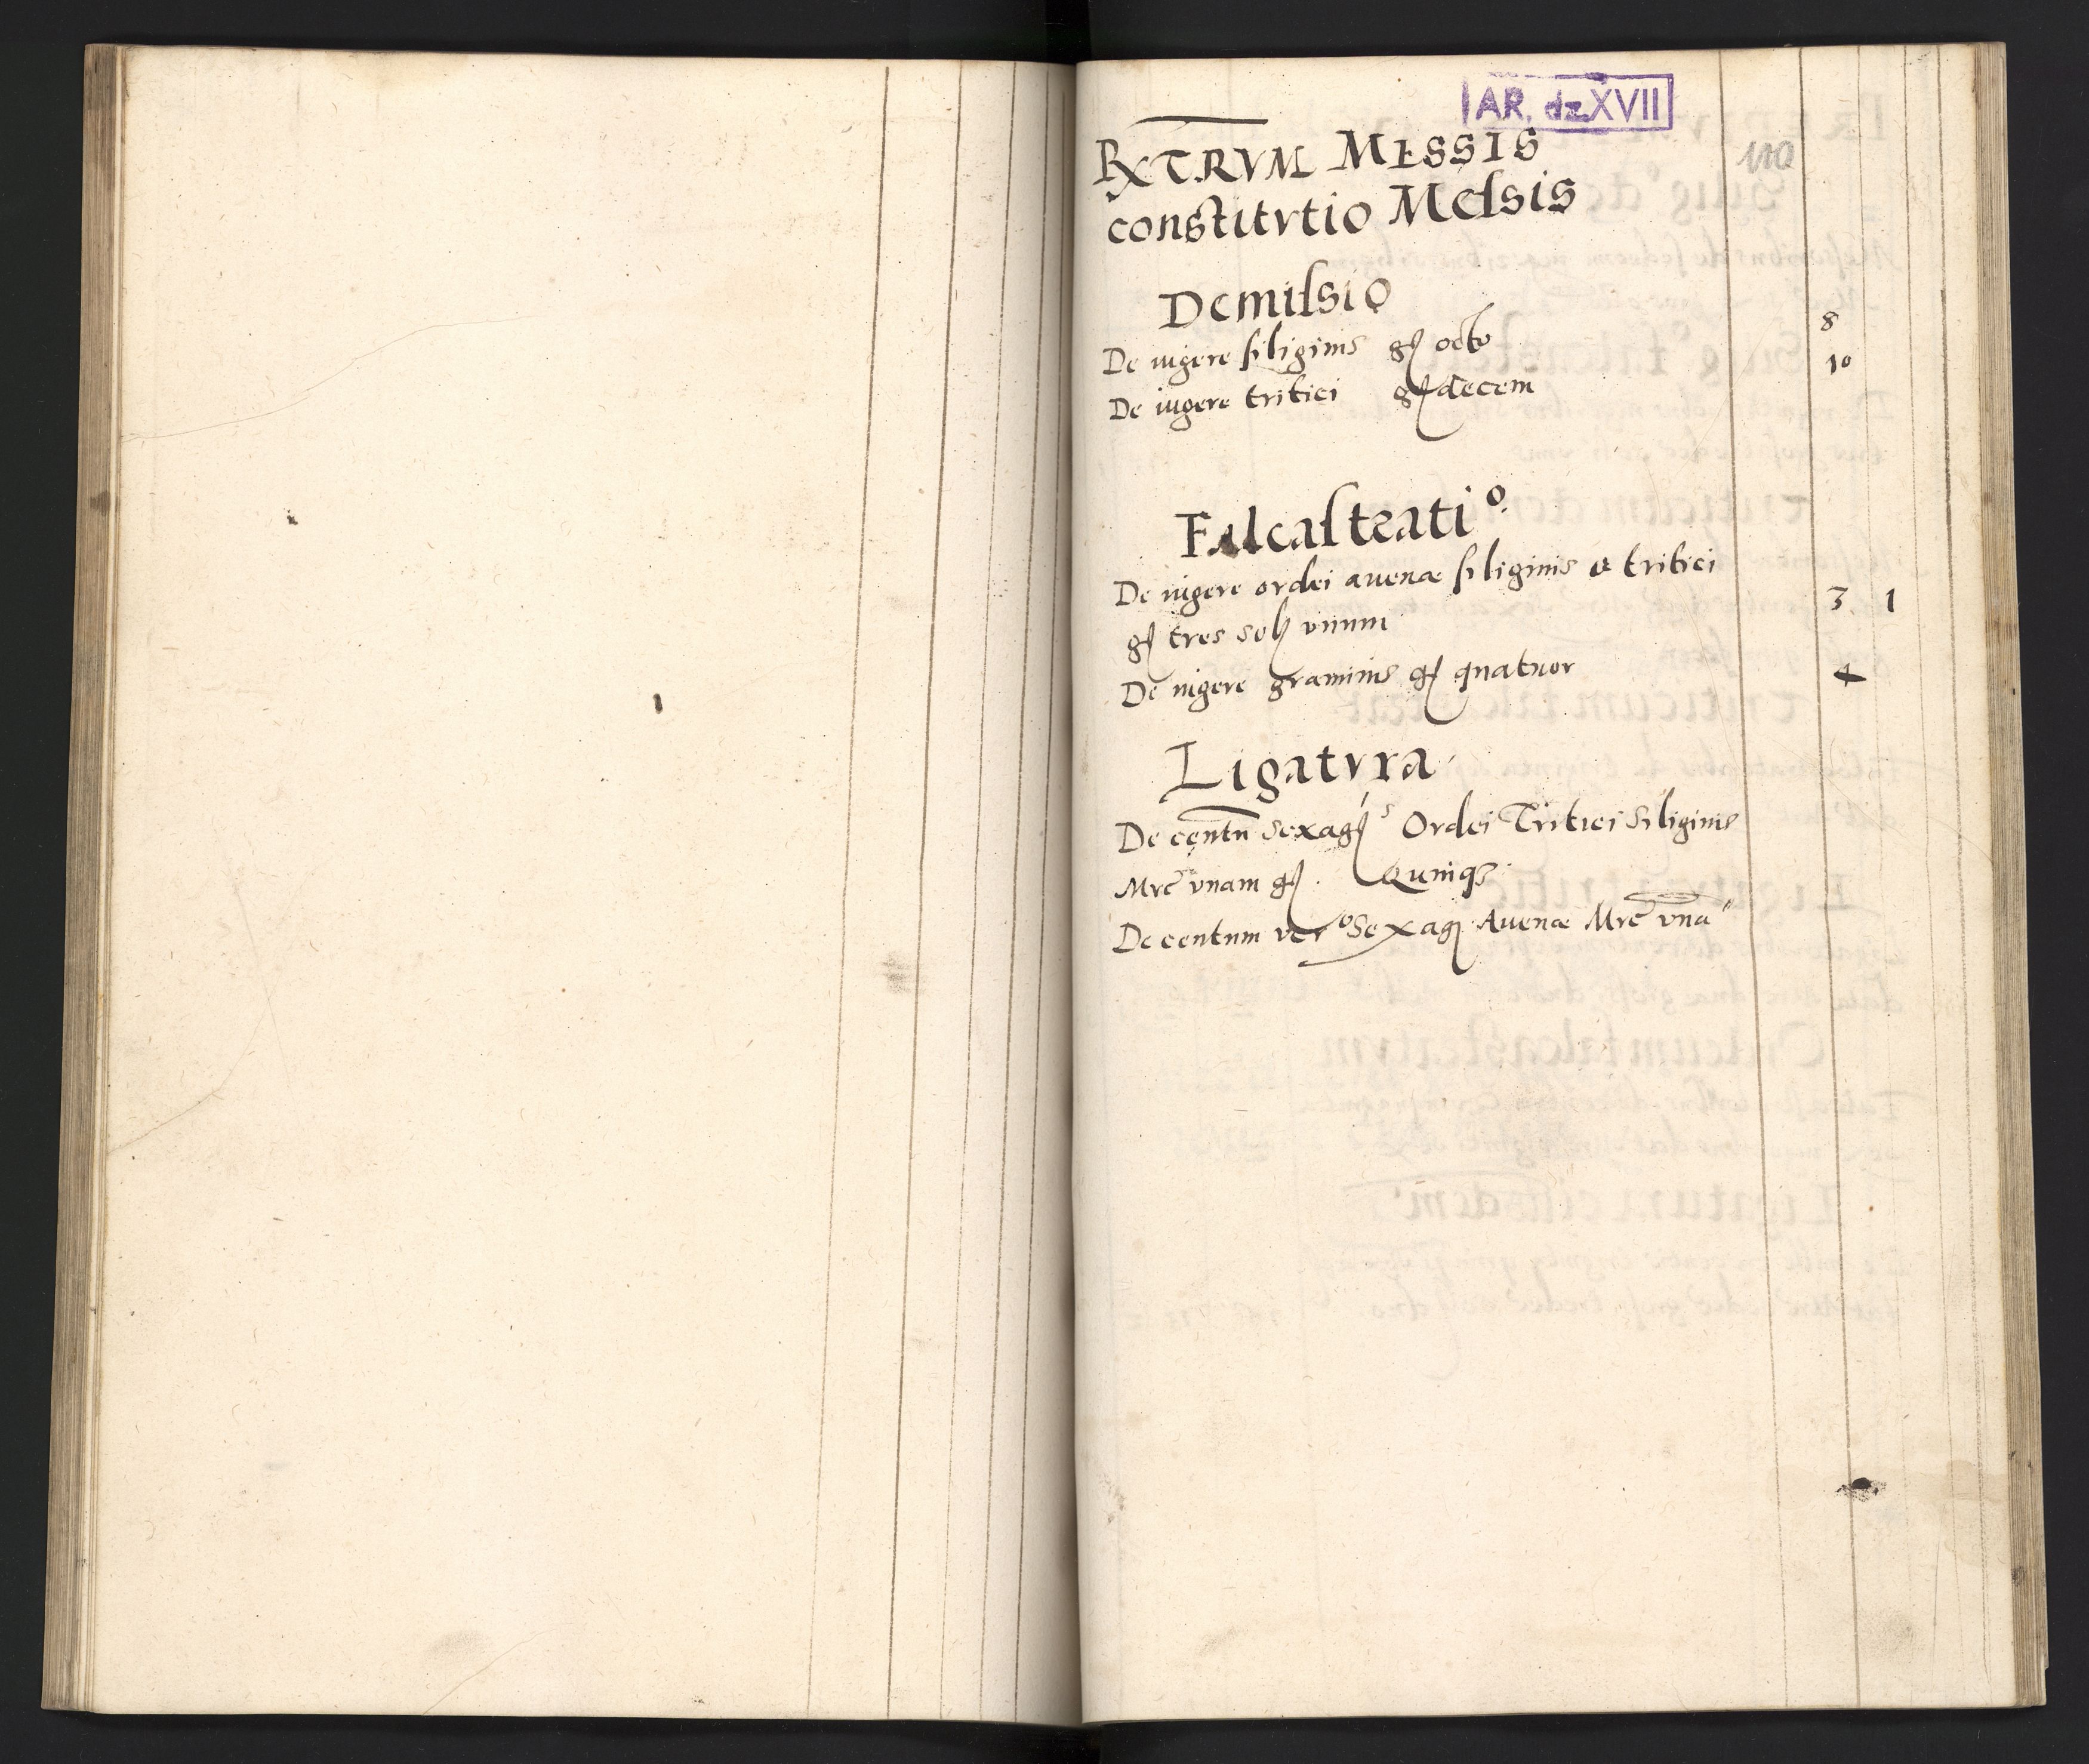 AR. dz XVII
110
RXTRVM MESSIS
constitvtio Messis
Demissio
De iugere siliginis gſ octo 8
De iugere tritici gſ decem 10
Falcastratio
De iugere ordei auenæ siliginis et tritici
gſ tres solſ vnum 3. 1
De iugere graminis gſ quatuor 4
Ligatvra
De centū sexagſ Ordei Tritici Siliginis
Mrc vnam gſ. Quinqʒ
De centum vero Sexagſ Auenæ Mrc vnā